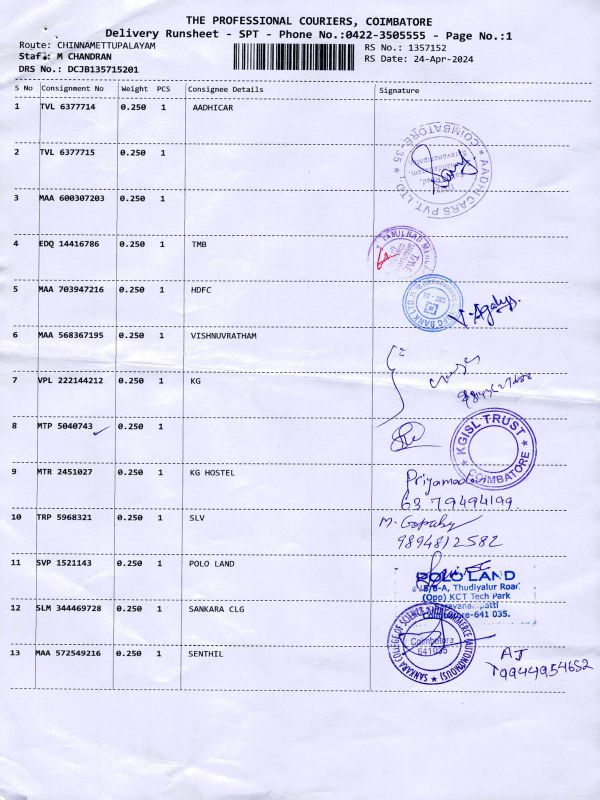 THE PROFESSIONAL COURIERS, COIMBATORE
Delivery Runsheet - SPT - Phone No.:0422-3505555 - Page No.:1
Route: CHINNAMETTUPALAYAM RS No.: 1357152
Staff: M CHANDRAN RS Date: 24-Apr-2024
DRS No.: DCJB135715201
S No Consignment No Weight PCS Consignee Details Signature
1 TVL 6377714 0.250 1 AADHICAR
2 TVL 6377715 0.250 1
COIMBATORE-35 * AADHI CARS PVT LTD.
3 MAA 600307203 0.250 1
4 EDQ 14416786 0.250 1 TMB
5 MAA 703947216 0.250 1 HDFC
6 MAA 568367195 0.250 1 VISHNUVRATHAM
7 VPL 222144212 0.250 1 KG
8 MTP 5040743 0.250 1
KGISL TRUST * COIMBATORE *
9 MTR 2451027 0.250 1 KG HOSTEL
63 79494199
10 TRP 5968321 0.250 1 SLV
M. Gopaby
9894812582
11 SVP 1521143 0.250 1 POLO LAND
POLO LAND
Thudiyalur Road
(Opp) KCT Tech Park
Saravanampatti
Coimbatore-641 035.
12 SLM 344469728 0.250 1 SANKARA CLG
SANKARA COLLEGE OF SCIENCE AND COMMERCE (AUTONOMOUS)
Coimbatore
641035
13 MAA 572549216 0.250 1 SENTHIL
AJ
9944954652